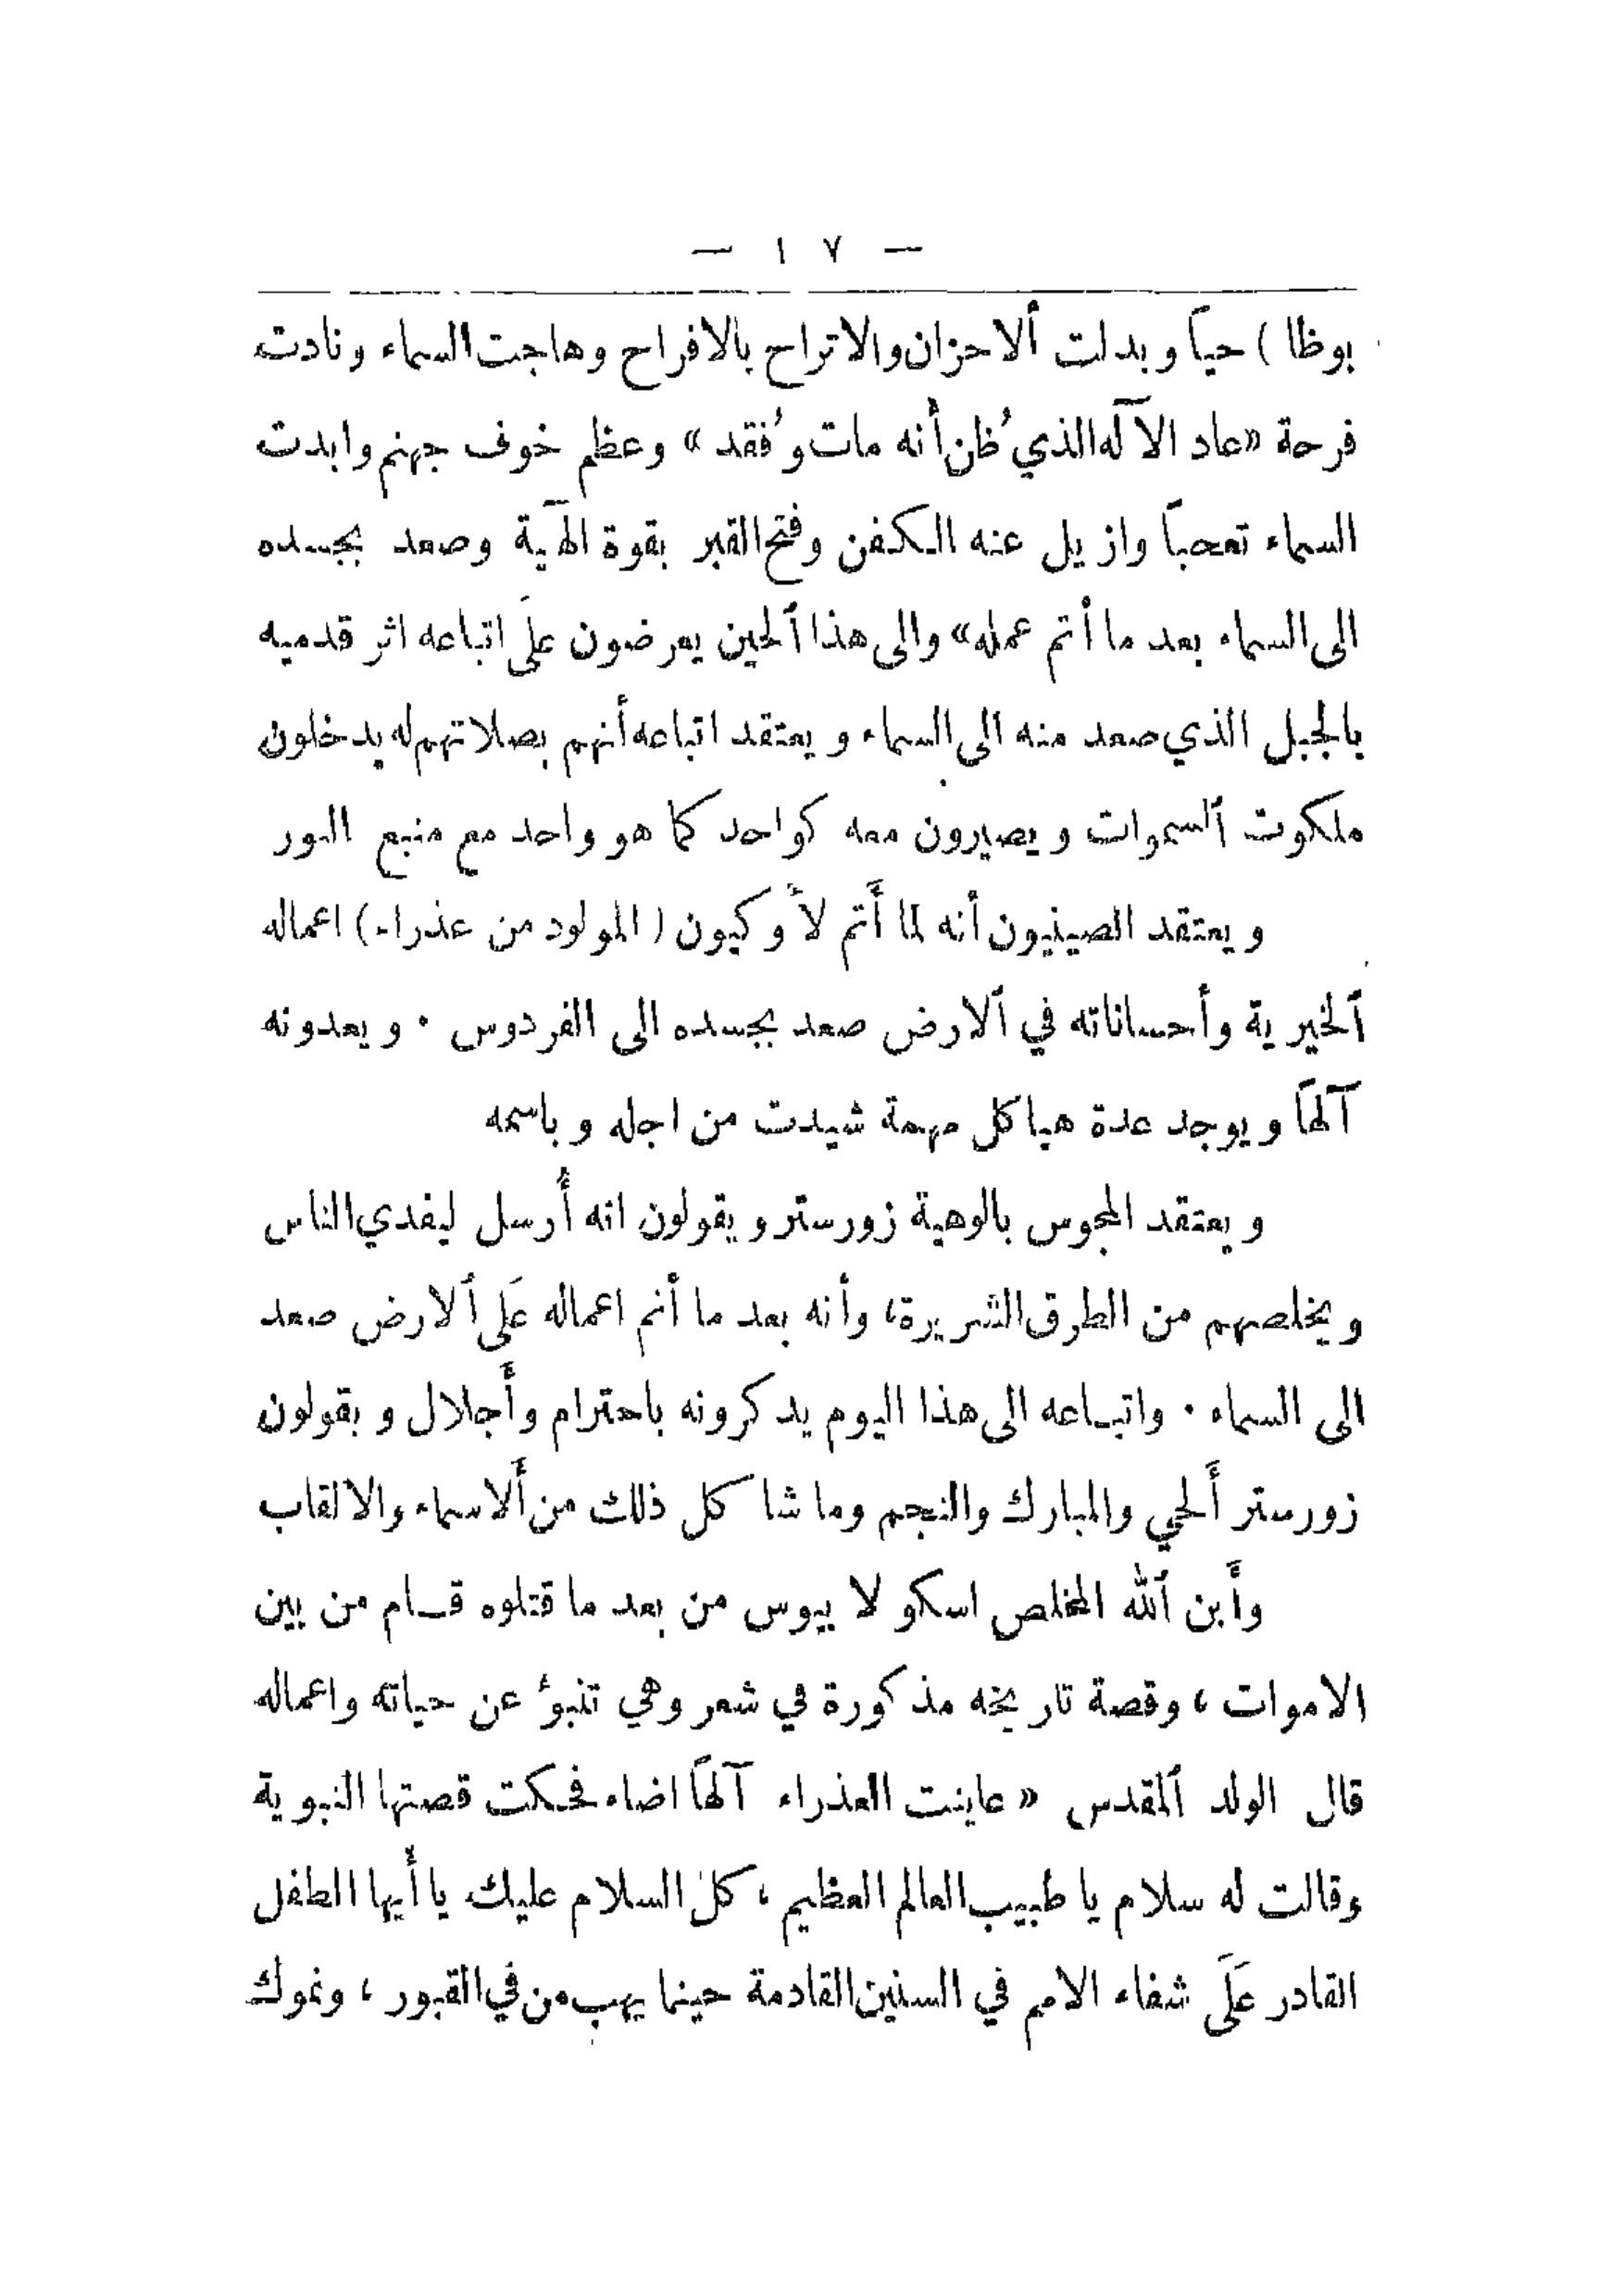 — ١٧ —
بوظا ) حياً وبدلت ألاحزان والاتراح بالافراح وهاجت السماء ونادت
فرحة «عاد الآله الذي ُظن أنه مات و ُفقد » وعظم خوف جهنم وابدت
السماء تعجباً وازيل عنه الكفن وفتح القبر بقوة الهٓية وصعد بجسده
الى السماء بعد ما أتم عمله» والى هذا ألحين يعرضون علَى اتباعه اثر قدميه
بالجبل الذي صعد منه الى السماء ويعتقد اتباعه أنهم بصلاتهم له يدخلون
ملكوت ألسموات ويصيرون معه كواحد كما هو واحد مع منبع النور
ويعتقد الصينيون أنه لما أَتم لاَوكيون ( المولود من عذراء) اعماله
ألخيرية وأحساناته في ألارض صعد بجسده الى الفردوس ٠ ويعدونه
آلهاً ويوجد عدة هياكل مهمة شيدت من اجله وباسمه
ويعتقد المجوس بالوهية زورستر ويقولون انه أُرسل ليفدي الناس
ويخلصهم من الطرق الشريرة، وأنه بعد ما أتم اعماله عَلى ألارض صعد
الى السماء ٠ واتباعه الى هذا اليوم يدكرونه باحترام وأَجلال ويقولون
زورستر أَلحي والمبارك والنجم وما شاكل ذلك من أَلاسماء والالقاب
وأَبن ألله المخلص اسكولابيوس من بعد ما قتلوه قام من بين
الاموات ، وقصة تاريخه مذكورة في شعر وهي تنبؤ عن حياته واعماله
قال الولد ألمقدس « عاينت العذراء آلهاً اضاء فحكت قصتها النبوية
وقالت له سلام يا طبيب العالم العظيم ، كل السلام عليك يا أيها الطفل
القادر عَلَى شفاء الامم في السنين القادمة حينما يهب من في القبور ، ونموك